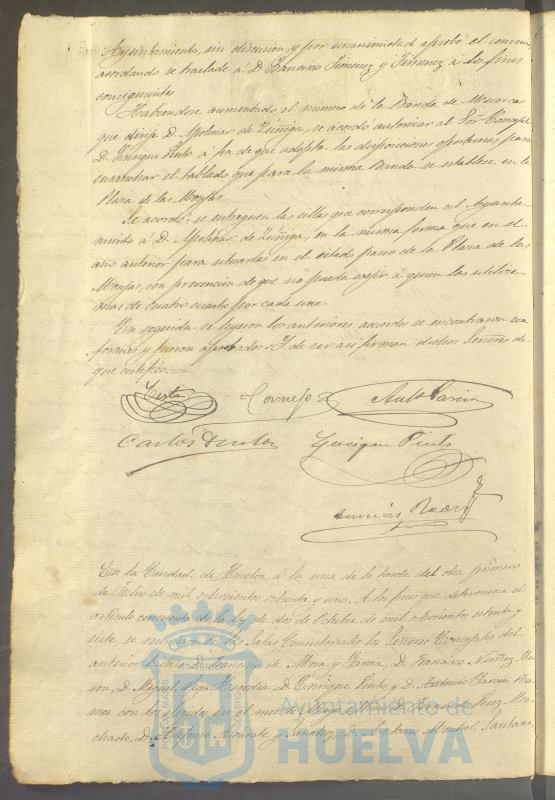 Ayuntamiento, sin discusion y por unanimidad aprobó el convenio
acordando se traslade á D. Francisco Jimenez y Jimenez a los fines
consiguientes
Habiendose aumentado el numero de la Banda de Musica
que dirije D. Molinar de Zúñiga, se acordó autorizar al Sor Concejal
D. Enrique Pinto á fin de que adopte las disposiciones oportunas para
ensanchar el tablado que para la misma Banda se establece en la
Plaza de las Monjas.
Se acordó: se entreguen las sillas que corresponden al Ayunta-
miento á D. Molinar de Zúñiga, en la misma forma que en el
año anterior para situarlas en el citado paseo de la Plaza de las
Monjas, con prevencion de que no pueda exijir á quien las utilice
mas de cuatro cuartos por cada una.
En seguida se leyeron los anteriores acuerdos se encontraron con-
formes y fueron aprobados. Y de ser asi firman dichos Señores de
que certifico.
Cornejo Anto Garcia
Carlos Enrique Pinto
En la Ciudad de Huelva á la una de la tarde del dia primero
de Julio de mil ochocientos ochenta y uno. A los fines que determina el
articulo cincuenta de la ley de dos de Octubre de mil ochocientos setenta y
siete, se reunieron en las Salas Consistoriales los Señores Concejales del
anterior bienio D. Francisco de Mora y Garcia, D. Francisco Nuñez
D. Miguel Vega D. Enrique Pinto y D. Antonio Garcia Ra-
mos con los elejidos en el mes de Mayo Perez Ma-
chado, D. Antonio y Sanchez, D. Antonio Santana
Ayuntamiento de
HUELVA